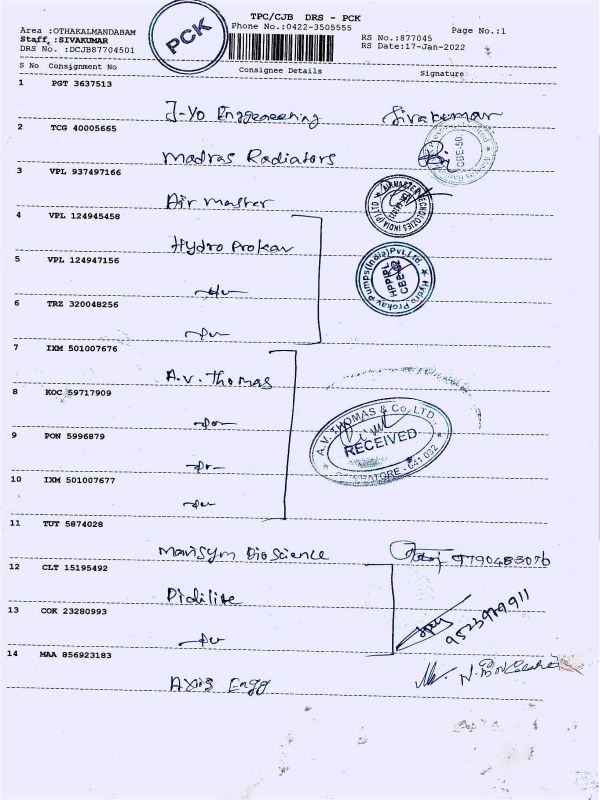 TPC/CJB DRS - PCK
Phone No.:0422-3505555
PCK
Area :OTHAKALMANDABAM
Staff :SIVAKUMAR
DRS No. :DCJB87704501
RS No.:877045
RS Date:17-Jan-2022
Page No.:1
S No Consignment No Consignee Details Signature
1 PGT 3637513
J-Yo Enggeneering Sivakumar
2 TCG 40005665
Madras Radiators
CBE-50
3 VPL 937497166
Air master
4 VPL 124945458
Hydro Prokav
Hydro Prokav Pumps(India)Pvt.Ltd.
HPPIPL
5 VPL 124947156
6 TRZ 320048256
7 IXM 501007676
A.V. Thomas
8 KOC 59717909
A.V. THOMAS & Co. LTD.
RECEIVED
641 032
9 PON 5996879
10 IXM 501007677
11 TUT 5874028
BioScience 9790483076
12 CLT 15195492
Pidilite
13 COK 23280993
14 MAA 856923183
Axis Engg